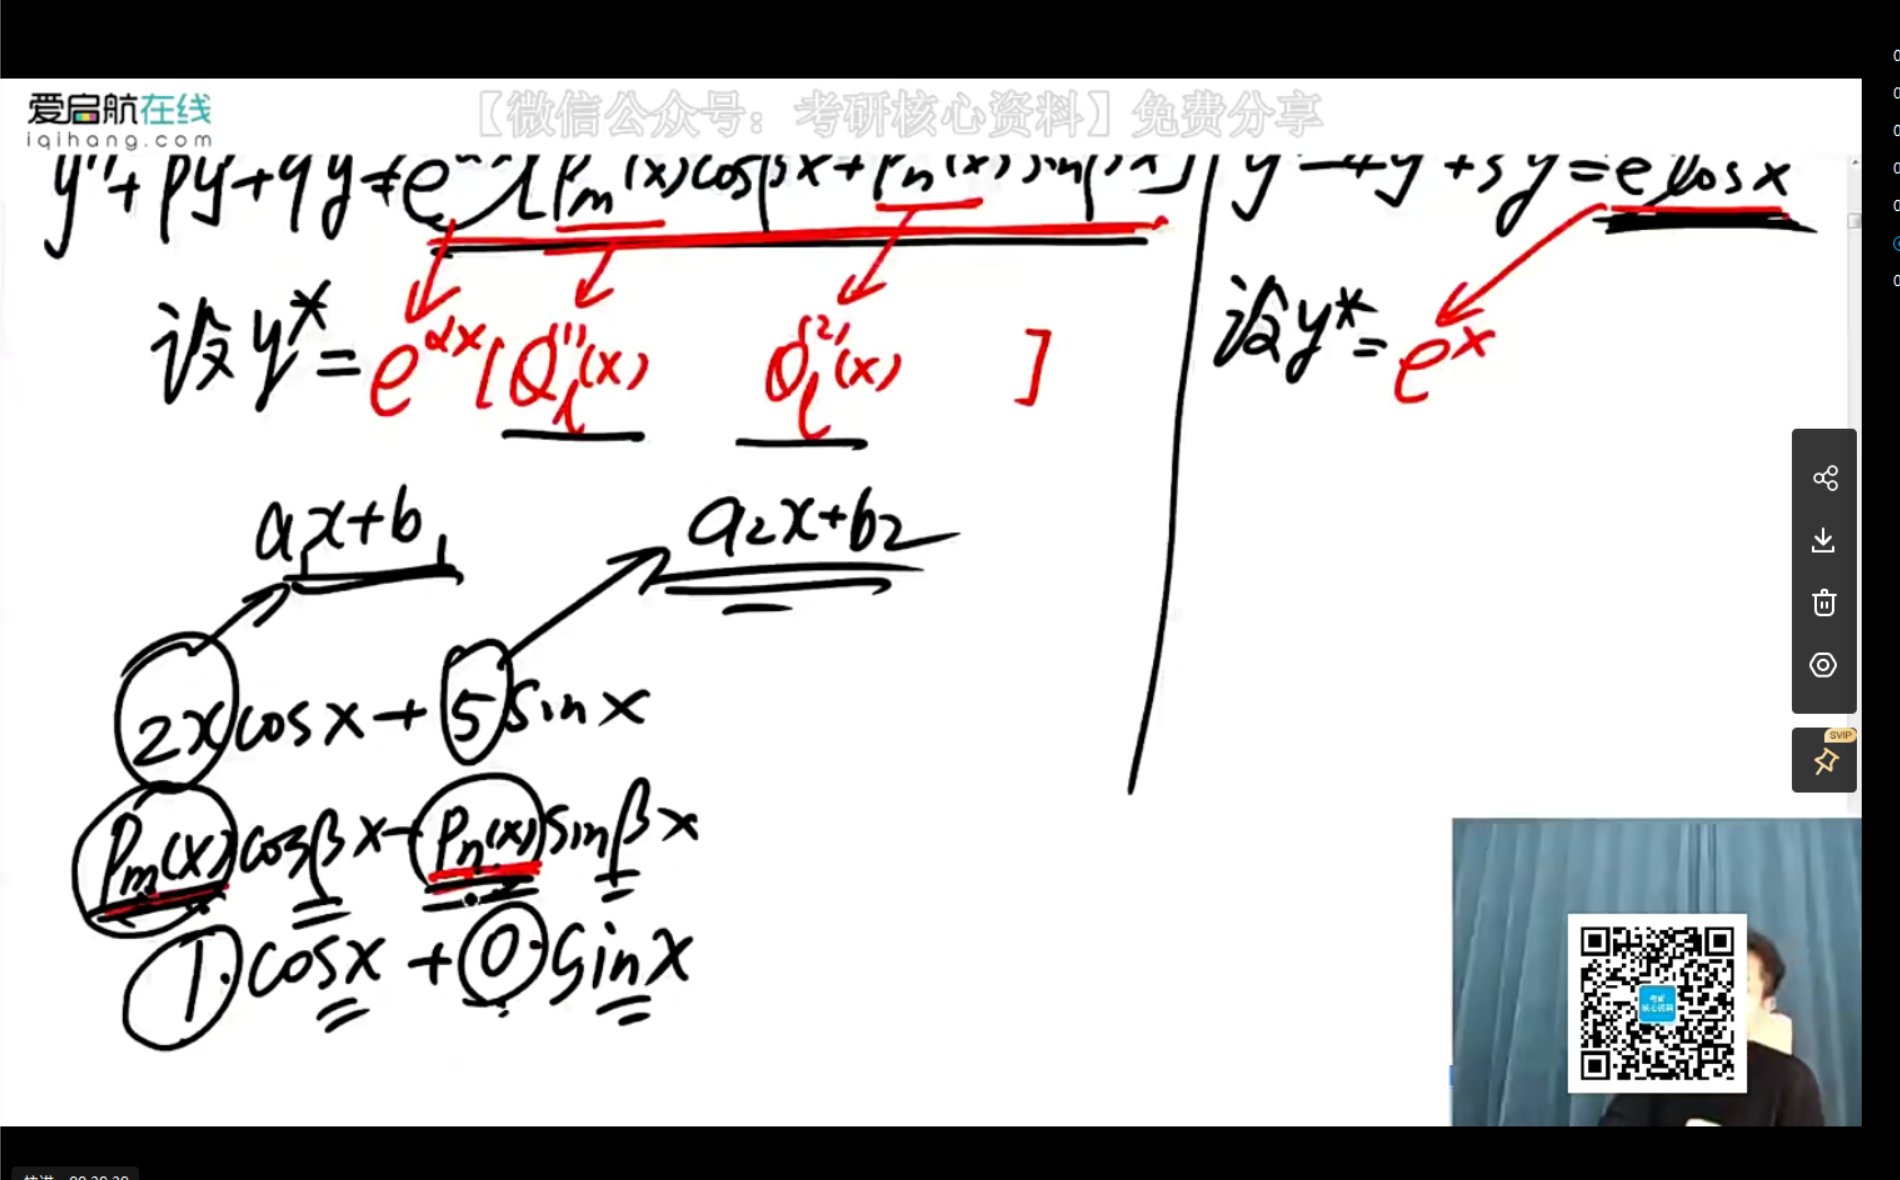 爱启航在线
iqihang.com
【微信公众号：考研核心资料】免费分享
y''+py'+qy=e^{αx}[P_m(x)cosβx+P_n(x)sinβx]
设y*=e^{αx}[Q_l^{(1)}(x) Q_l^{(2)}(x) ]
a_1x+b_1 a_2x+b_2
2xcosx+5sinx
P_m(x)cosβx+P_n(x)sinβx
1·cosx+0·sinx
设y*=e^x
SVIP
考研
核心资料